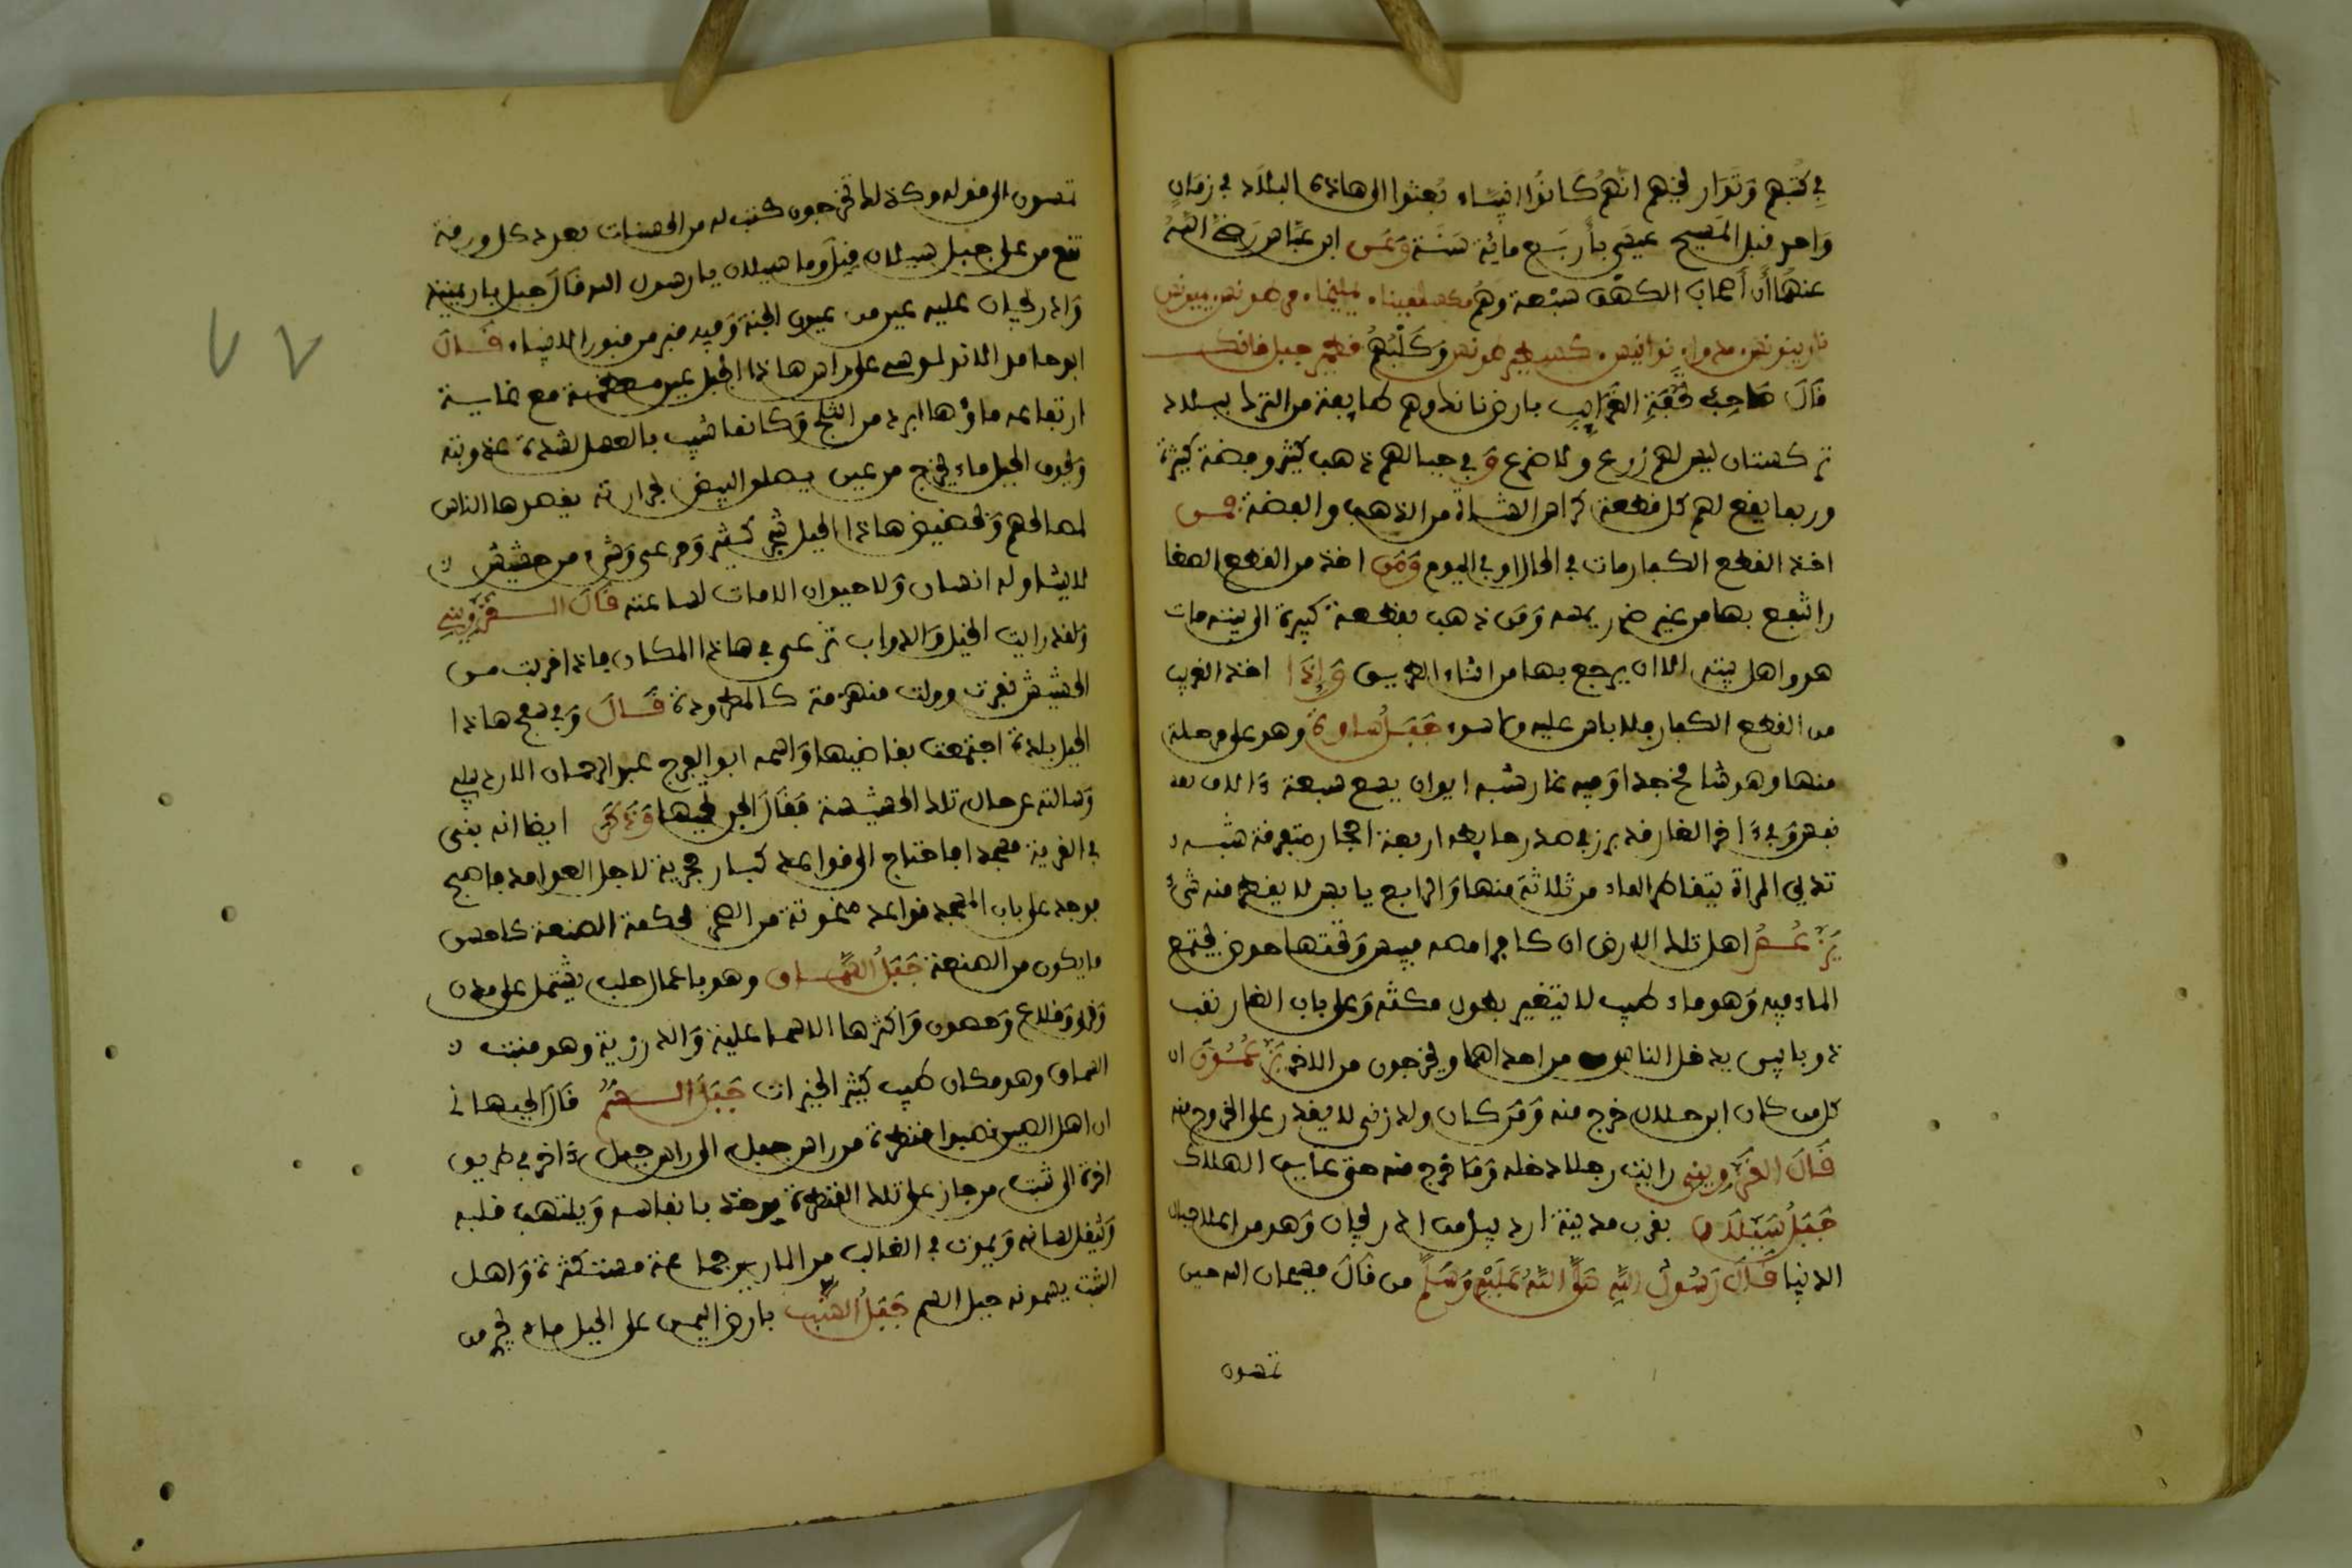 في كتبهم وتواريخهم انهم كانوا انبياء بعثوا الى هاذه البلاد في زمان
واحد قبل المسيح عيسى بأربع مائة سنة وعن ابن عباس رضي الله
عنهما أن أصحاب الكهف سبعة وهم
وكلبهم قطمير جبل فانك
قال صاحب تحفة الغرائب بارض وهم طايفة من الترك ببلاد
تركستان ليس لهم زرع ولا ضرع وفي جبالهم ذهب كثير وفضة كثيرة
وربما يقع لهم كل قطعة كراس الشاة من الذهب والفضة فمن
اخذ القطع الكبار مات في الحال او في اليوم ومن اخذ من القطع الصغا
ر انتفع بها من غير ضر يمسه ومن ذهب بقطعة كبيرة الى بيته مات
هو واهل بيته الا ان يرجع بها من اثناء الطريق وإذا اخذ الغريب
من القطع الكبار فلا باس عليه ولا سوء جبل ساوة وهو على مرحلة
منها وهو شامخ جدا وفيه غار شبه ايوان يسع سبعة ءالاف نفس
وفي ءاخر الغار قد برز في صدر حايطه اربعة احجار متفرقة شبه
ثدي المراة يتقاطر الماء من ثلاثة منها والرابع يابس لا يقطر منه شيء
يزعم اهل تلك الارض ان كافرا مصه فيبس وتحتها حوض يجتمع
الماء فيه وهو ماء طيب لا يتغير بطول مكثه وعلى باب الغار نقب
ذو بابين يدخل الناس من احداهما ويخرجون من الاخر يزعمون ان
كل من كان ابن حلال خرج منه ومن كان ولد زنى لا يقدر على الخروج منه
قال القزويني رايت رجلا دخله وما خرج منه حتى عاين الهلاك
جبل سيلان بقرب مدينة اردبيل من اذربيجان وهو من اعلا جبال
الدنيا قال رسول الله صلى الله عليه وسلم من قال فسبحان الله حين
تمسون
تمسون الى قوله وكذلك تخرجون كتب له من الحسنات بعدد كل ورقة
تقع من على جبل سيلان قيل وما سيلان يا رسول الله قال جبل بارمينية
واذربيجان عليه عين من عيون الجنة وفيه قبر من قبور الانبياء قال
ابو حامد الاندلوسي على راس هاذا الجبل عين عظيمة مع غاية
ارتفاعه ماؤها ابرد من الثلج وكانما شيب بالعسل لشدة عذوبته
وبجوف الجبل ماء يخرج من عين يصلق البيض لحرارته يقصدها الناس
لمصالحهم وبحضيض هاذا الجبل شجر كثير ومرعى وشيء من حشيش
لا يتناوله انسان ولا حيوان الا مات لساعته قال القزويني
ولقد رايت الخيل والدواب ترعى في هاذا المكان فاذا قربت من
الحشيش نفرت وولت منهزمة كالمطرودة قال وفي سفح هاذا
الجبل بلدة اجتمعت بقاضيها واسمه ابو الفرج عبد الرحمان الاردبيلي
وسالته عن حال تلك الحشيشة فقال الجن تحميها وذكر ايضا انه بنى
في القرية مسجدا فاحتاج الى قواعد كبار حجرية لاجل العوامد فاصبح
فوجد على باب المسجد قواعد منحوتة من الصخر محكمة الصنعة كاحسن
ما يكون من الصنعة جبل السماق وهو باعمال حلب يشتمل على مدن
وقرى وقلاع وحصون واكثرها للاسماعلية والدرزية وهو منبت
السماق وهو مكان طيب كثير الخيرات جبل السم قال الجيهاني
ان اهل الصين نصبوا قنطرة من راس جبل الى راس جبل ءاخر في طريق
اخرة الى تبت من جاز على تلك القنطرة يوخذ بانفاسه ويلتهب قلبه
وثيقل لسانه ويموت في الغالب من المارين جماعة مستكثرة واهل
التبت يسمونه جبل السم جبل الشب بارض اليمن على الجبل ماء يجري من